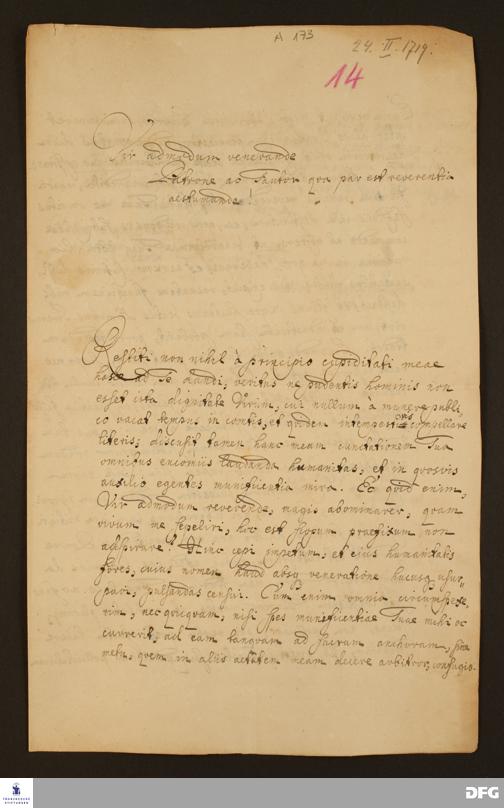 A 173
24. II. 1719.
14
Vir admodum venerande
Patrone ac Fautor qua par est reverentia
aestumande!
Restiti non nihil à principio cupiditati meae
hasce ad Te dandi, veritus ne pudentis hominis non
esset ista dignitate Virum, cui nullum à munere publi
co vacat tempus in contis, et quidem intempest compellare
literis; discussit tamen hanc meam cunctationem Tua
omnibus encomiis laudanda humanitas, et in quosvis
auxilio egentes munificentia mira. Ec quid enim,
Vir admodum reverende, magis abominarer, quam
vivum me sepeliri, hoc est scopum praefixum non
adspirare? Hinc cepi impetum, et eius humanitatis
fores, cuius nomen haud absq veneratione hucusq usur
pavi, pulsandas censui. Cum enim omnia circumspexe,
rim, nec quicquam, nisi spes munificentiae Tuae mihi oc
currerit, ad eam tanquam ad sacram anchoram, sine
metu, quem in aliis aetatem meam decere arbitror, confugio.
FRANCKESCHE
STIFTUNGEN
DFG